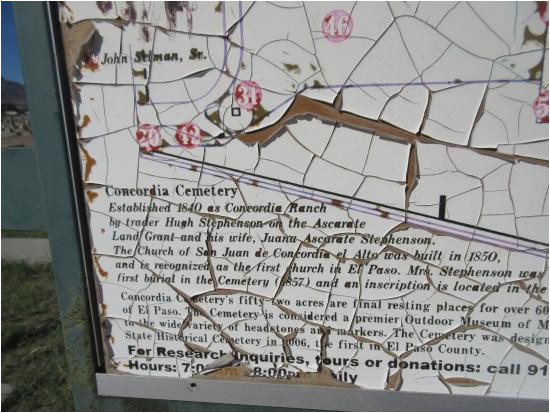 46
John Selman, Sr.
31
20
42
Concordia Cemetery
Established 1840 as Concordia Ranch
by trader Hugh Stephenson on the Ascarate
Land Grant and his wife, Juana Ascarate Stephenson.
The Church of San Juan de Concordia el Alto was built in 1850,
and is recognized as the first church in El Paso. Mrs. Stephenson was
first burial in the Cemetery (1857) and an inscription is located in the
Concordia Cemetery's fifty-two acres are final resting places for over 60
of El Paso. The Cemetery is considered a premier Outdoor Museum of M
to the wide variety of headstones and markers. The Cemetery was design
State Historical Cemetery in 2006, the first in El Paso County.
For Research Inquiries, tours or donations: call 91
Hours: 7:0 8:00